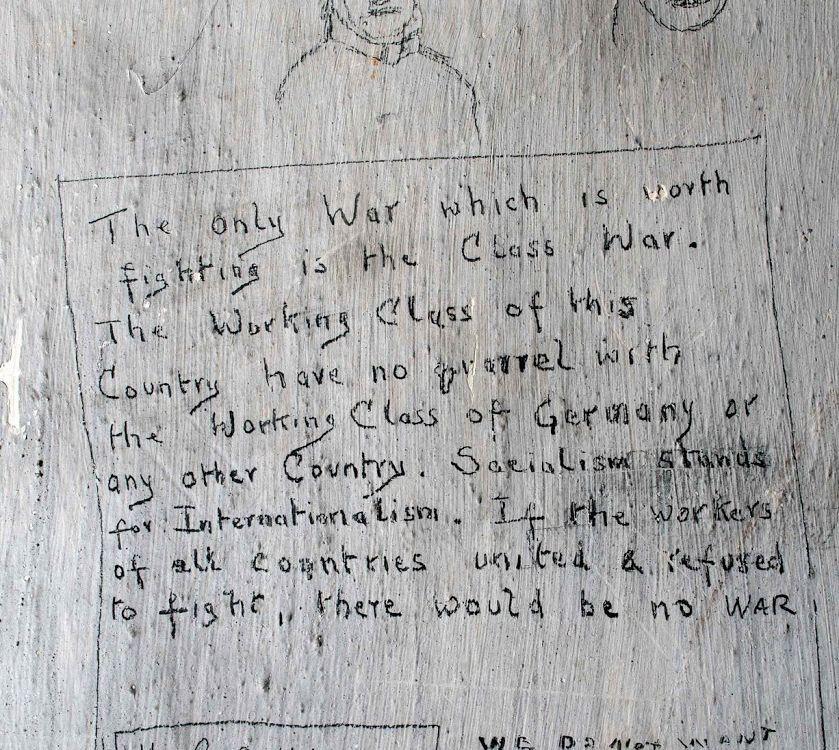 The only War which is worth
fighting is the Class War.
The Working Class of this
Country have no quarrel with
the Working Class of Germany or
any other Country. Socialism stands
for Internationalism. If the workers
of all countries united & refused
to fight, there would be no WAR
WE DO NOT WANT